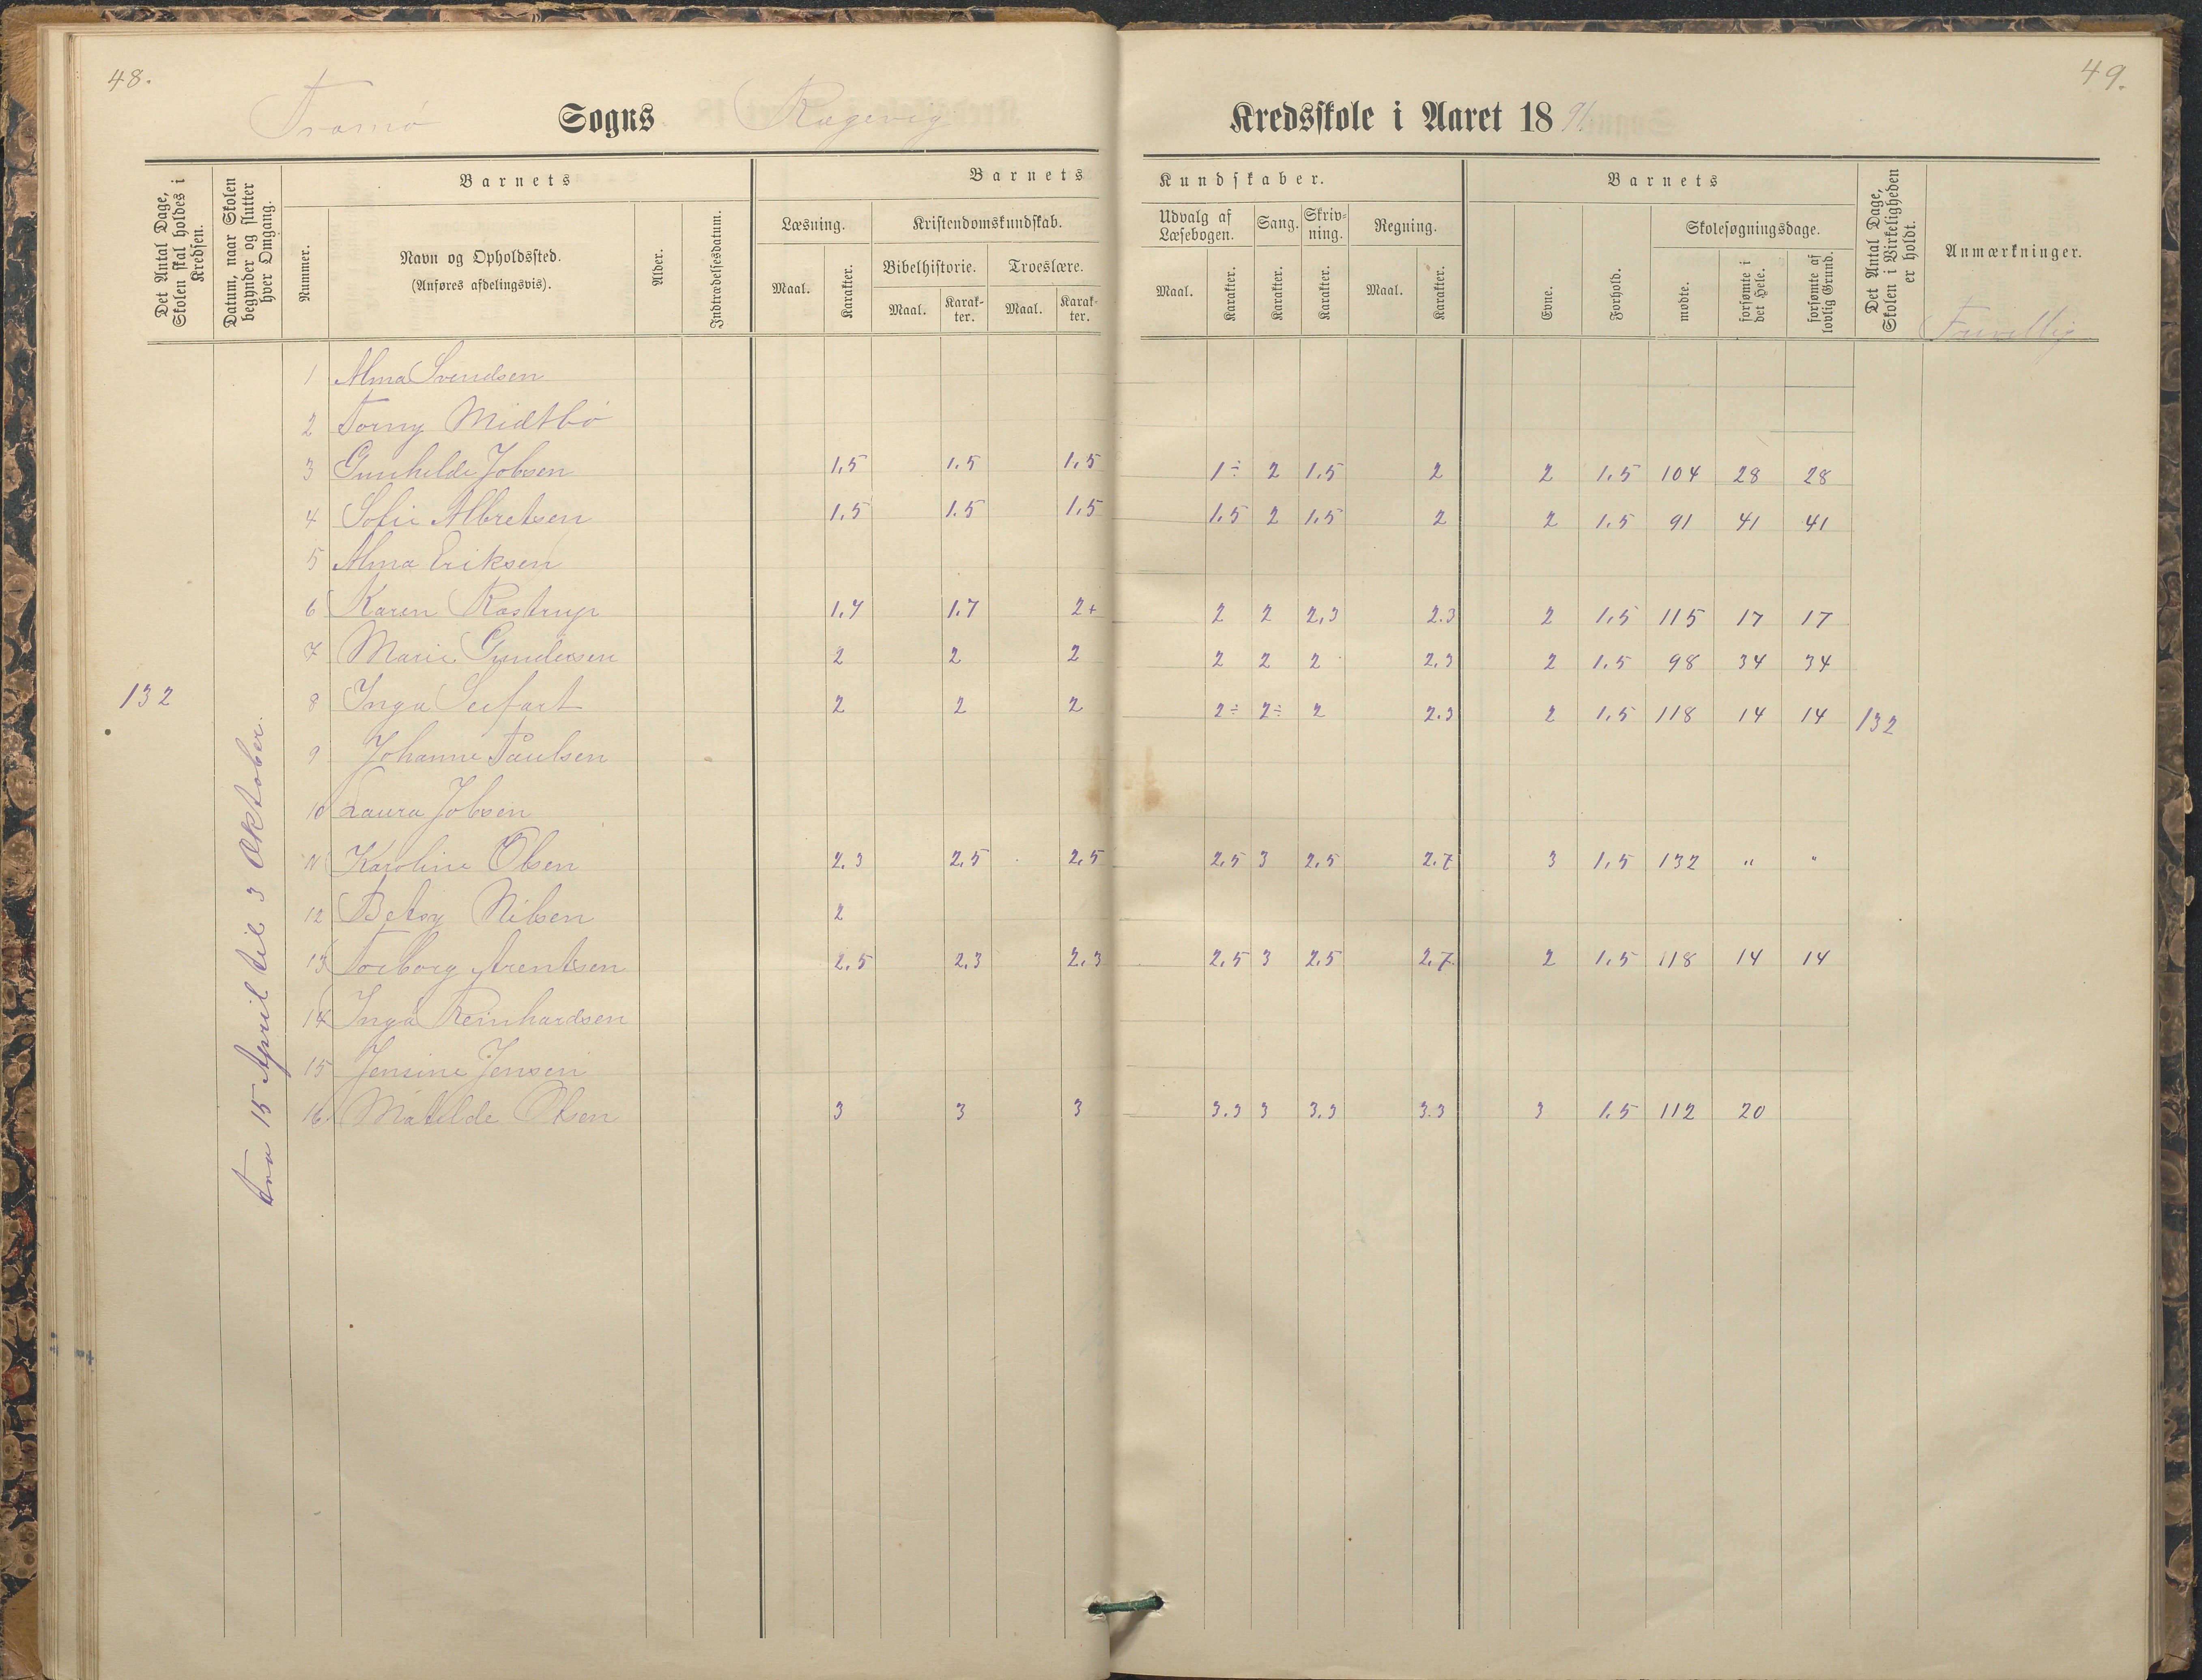 48.
49.
Tromø Sogns Kredsskole i Aaret 1891
Det Antal Dage, Skolen skal holdes i Kredsen.
Datum, naar Skolen begynder og slutter hver Omgang.
Barnets
Nummer.
Navn og Opholdssted.
(Anføres afdelingsvis).
Alder.
Indtrædelsesdatum.
Barnets Kundskaber.
Læsning.
Maal.
Karakter.
Kristendomskundskab.
Bibelhistorie.
Maal.
Karakter.
Troeslære.
Maal.
Karakter.
Udvalg af Læsebogen.
Maal.
Karakter.
Sang.
Karakter.
Skrivning.
Karakter.
Regning.
Maal.
Karakter.
Barnets
Evne.
Forhold.
Skolesøgningsdage.
mødte.
forsømte i det Hele.
forsømte af lovlig Grund.
Det Antal Dage, Skolen i Virkeligheden er holdt.
Anmærkninger.
Frivillig
132
Fra 15 April til 3 Oktober.
1 Alma Svendsen
2 Torny Midtbø
3 Gunhilde Jobsen 1,5 1.5 1,5 1÷ 2 1.5 2 2 1.5 104 28 28
4 Sofie Albretsen 1.5 1.5 1,5 1.5 2 1.5 2 2 1.5 91 41 41
5 Alma Eriksen
6 Karen Rostrup 1.7 1.7 2+ 2 2 2,3 2.3 2 1.5 115 17 17
7 Marie Gundersen 2 2 2 2 2 2 2.3 2 1.5 98 34 34
8 Inga Seefart 2 2 2 2÷ 2÷ 2 2.3 2 1.5 118 14 14 132
9 Johanne Paulsen
10 Laura Jobsen
11 Karoline Olsen 2.3 2,5 2,5 2,5 3 2,5 2.7 3 1.5 132 " "
12 Betsy Nilsen 2
13 Torborg Arentsen 2.5 2.3 2.3 2.5 3 2.5 2.7 2 1.5 118 14 14
14 Inga Reinhardsen
15 Jensine Jensen
16 Matilde Olsen 3 3 3 3.3 3 3.3 3.3 3 1.5 112 20